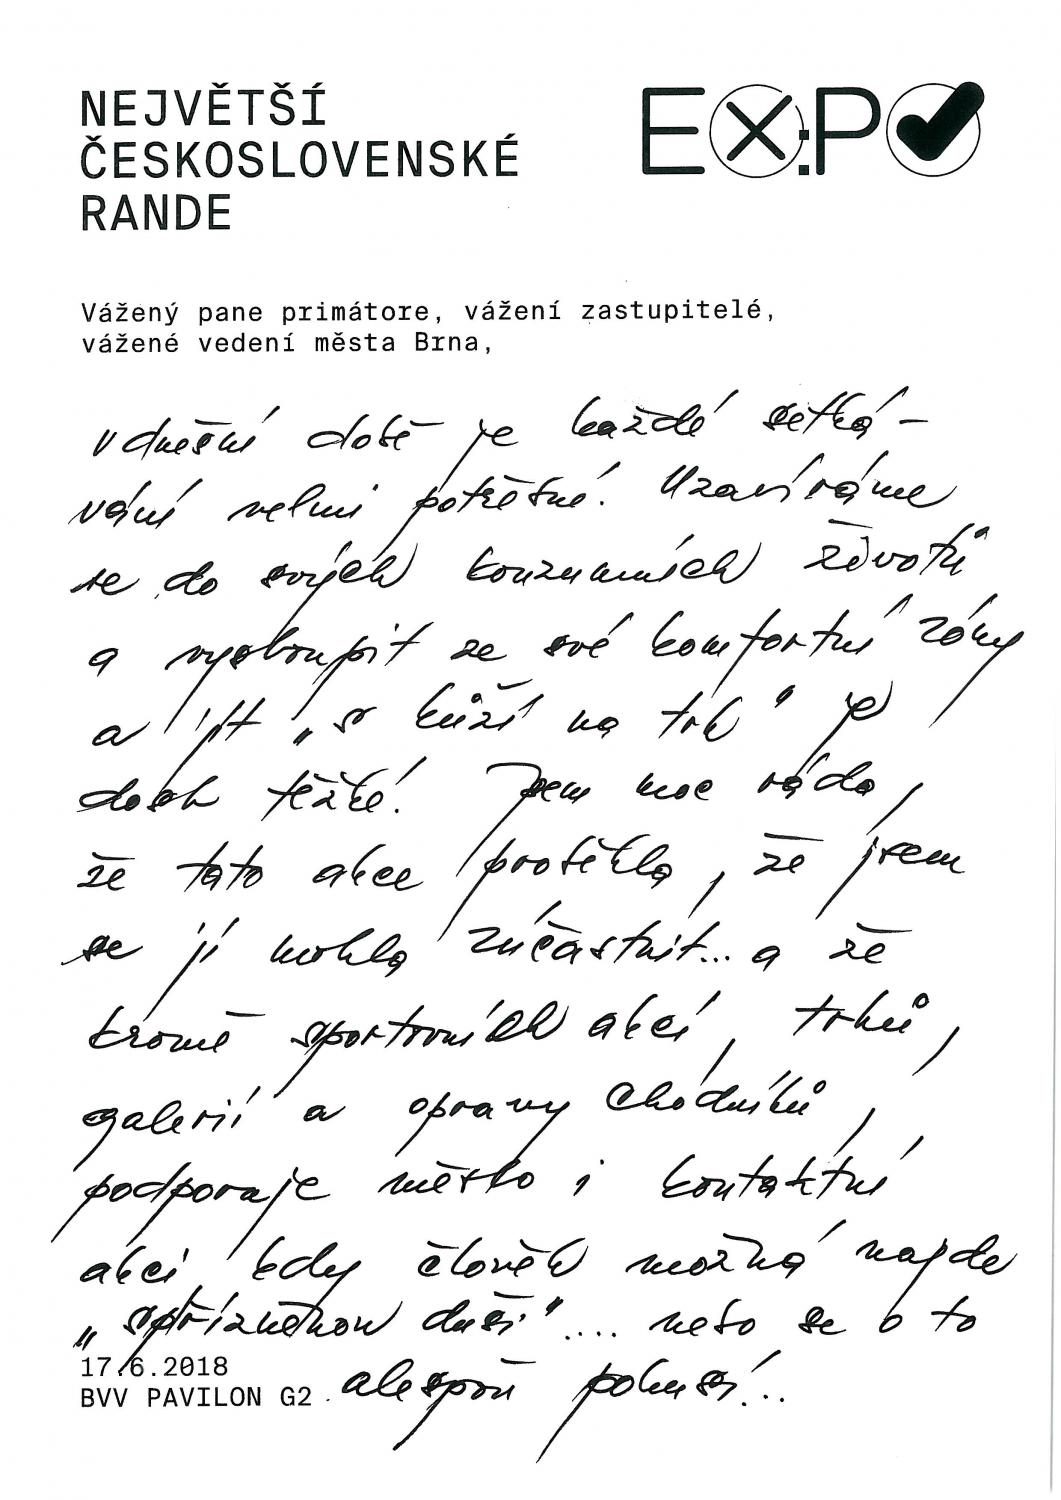 NEJVĚTŠÍ
ČESKOSLOVENSKÉ
RANDE
EX:PO
Vážený pane primátore, vážení zastupitelé,
vážené vedení města Brna,
v dnešní době je každé setká-
vání velmi potřebné. Uzavíráme
se do svých konzumních životů
a vystoupit ze své komfortní zóny
a jít „s kůží na trh" je
dosti těžké! Jsem moc ráda,
že tato akce proběhla, že jsem
se jí mohla zúčastnit... a že
kromě sportovních akcí, trhů,
galerií a opravy chodníků,
podporuje město i kontaktní
akci, kdy člověk možná najde
„spřízněnou duši".... nebo se o to
17.6.2018
BVV PAVILON G2
alespoň pokusí!..